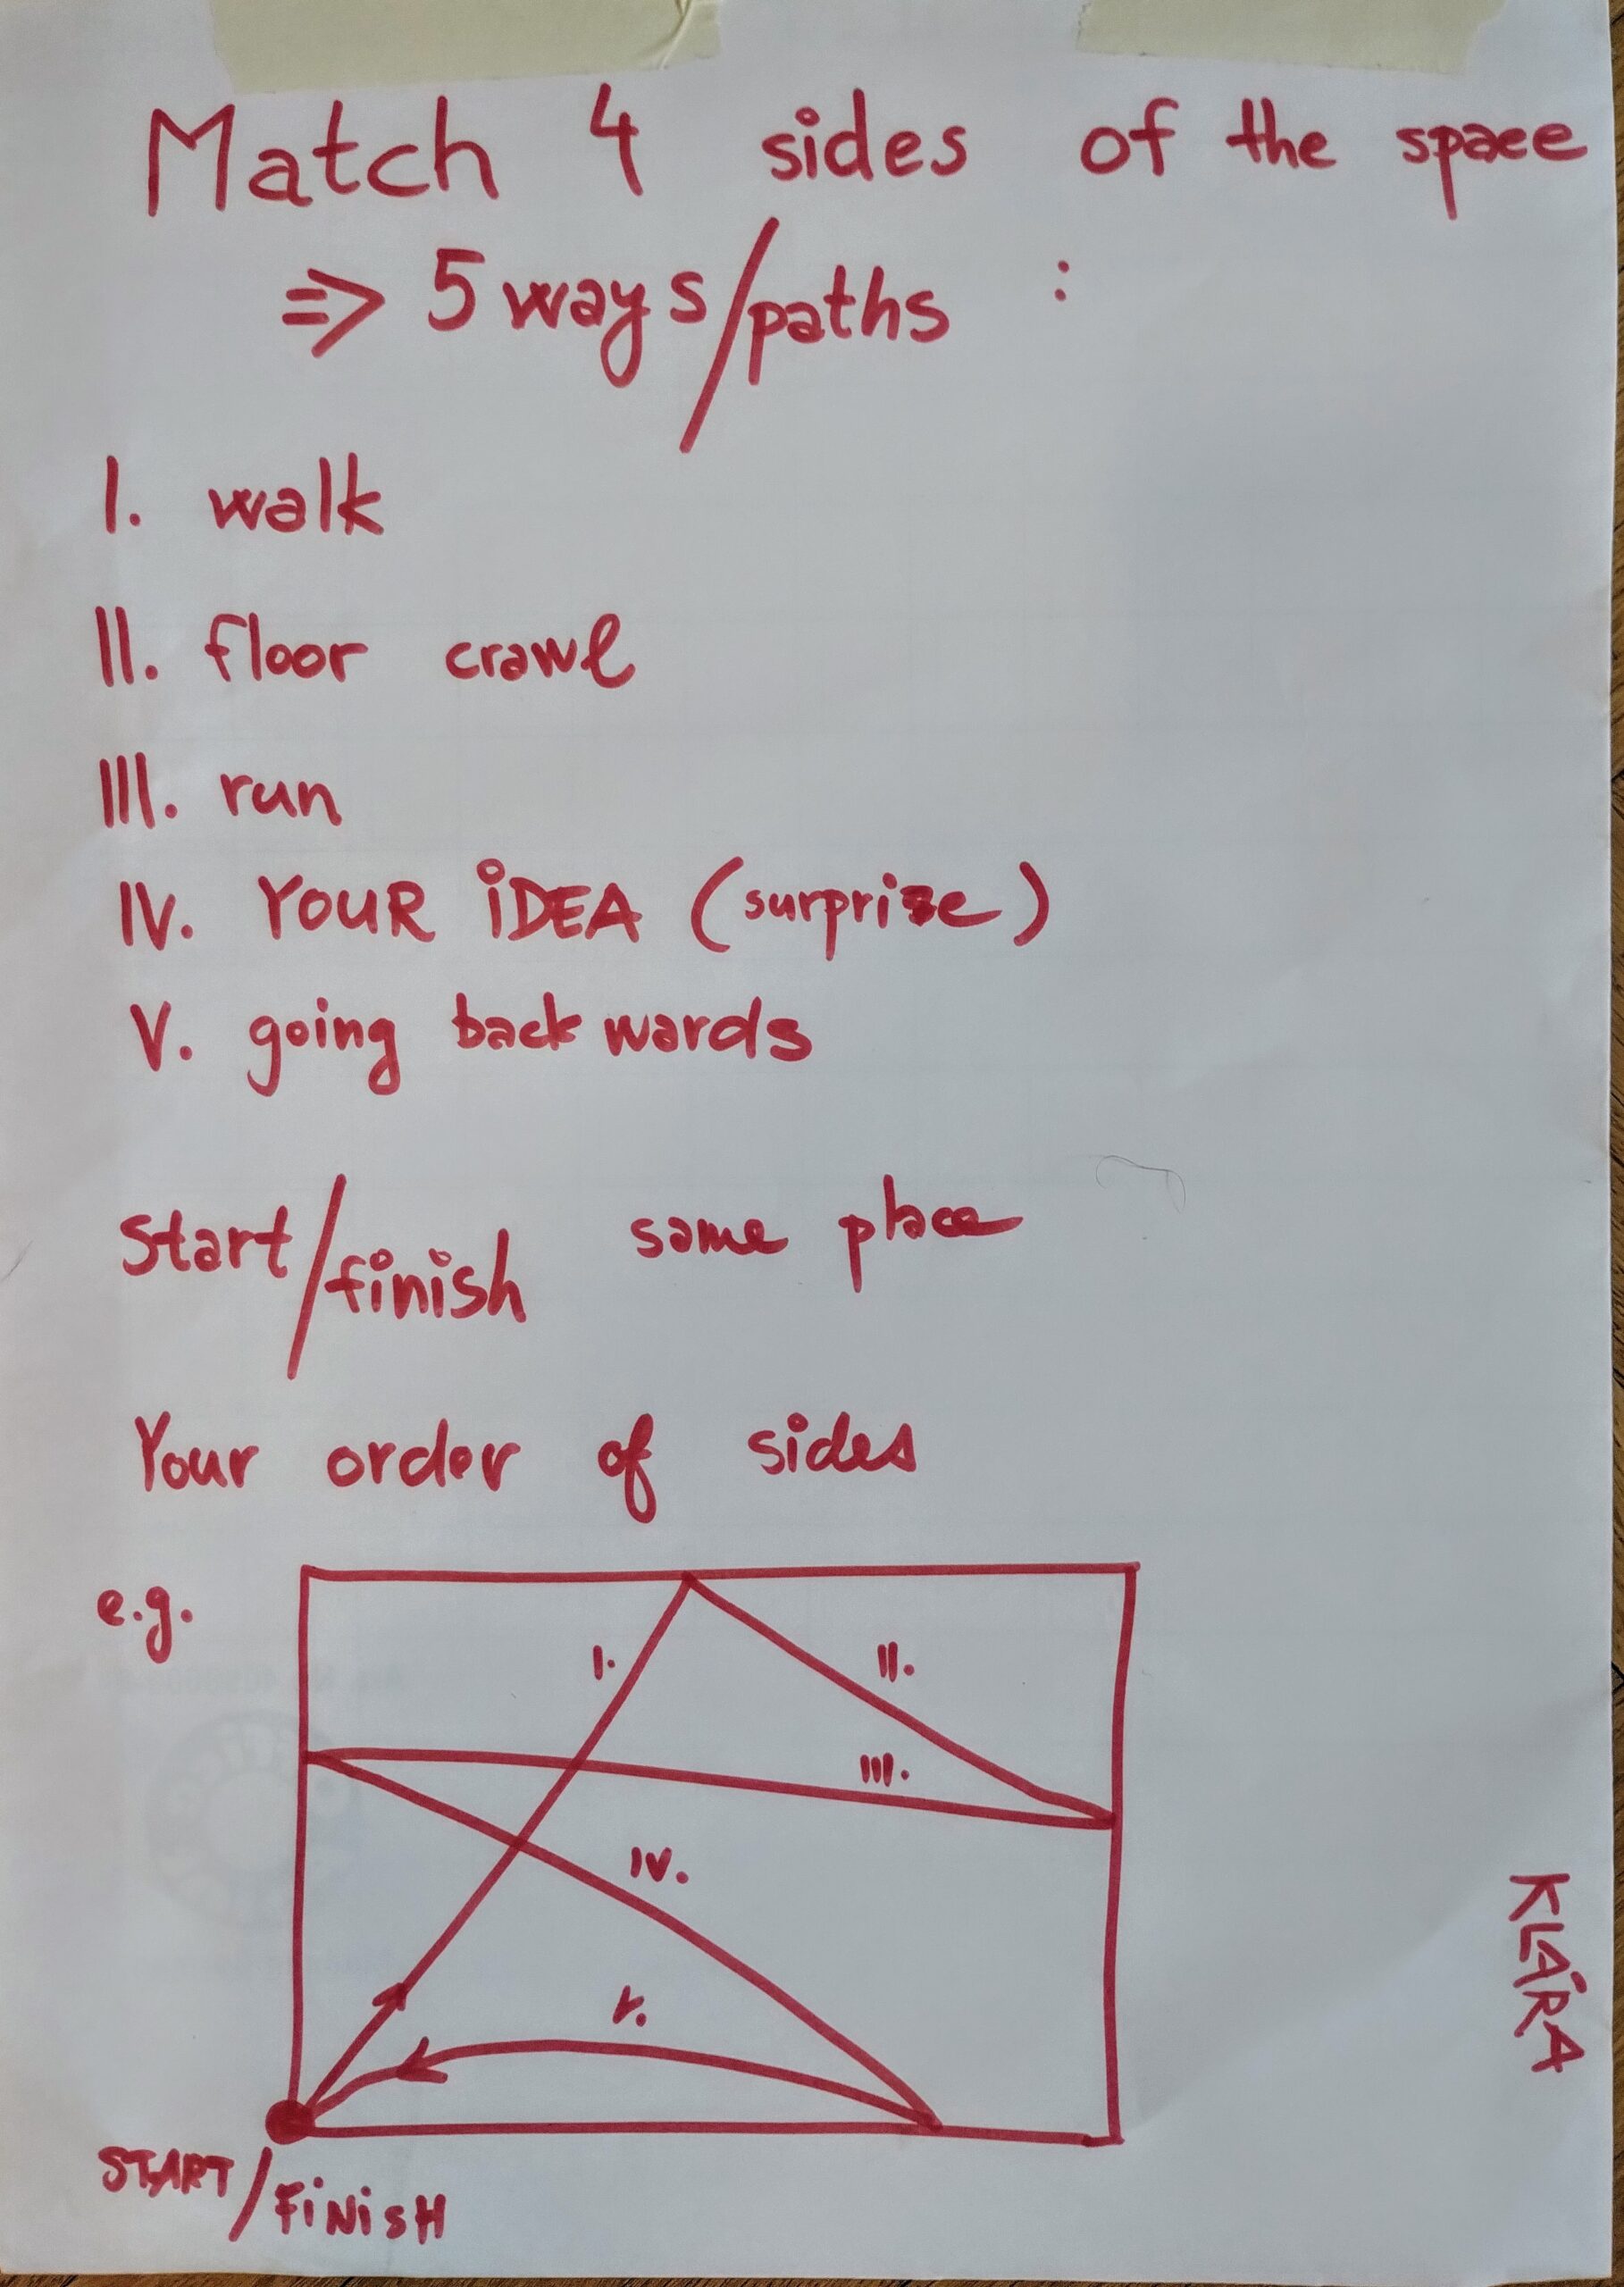 Match 4 sides of the space
=> 5 ways/paths :
I. walk
II. floor crawl
III. run
IV. YOUR iDEA (surprise)
V. going backwards
Start/finish same place
Your order of sides
e.g.
I.
II.
III.
IV.
V.
START/FiNiSH
KLÁRA